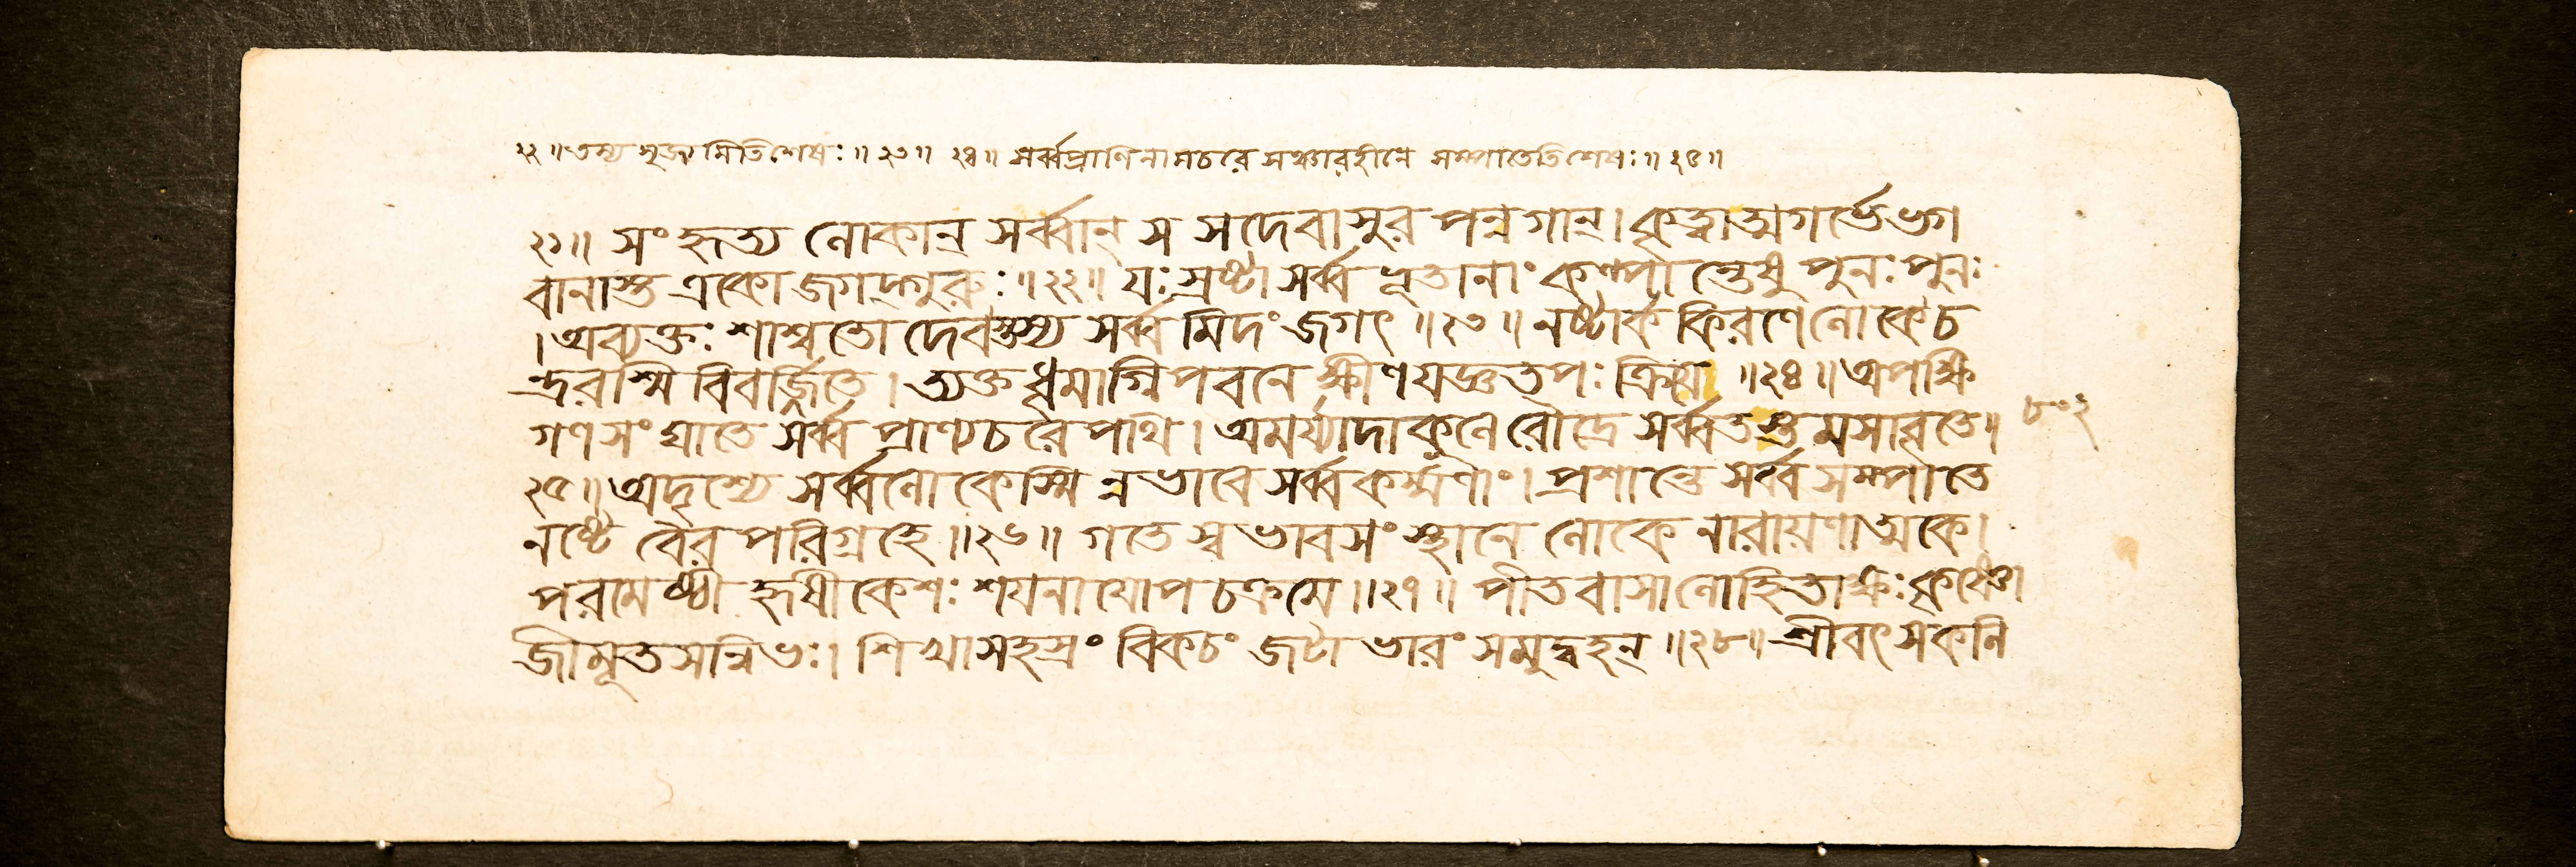 ২২॥ তস্য সৃজ্যমিতিশেষঃ॥২৩॥ ২৪॥ সর্ব্বপ্রাণিনামচরে সঞ্চারহীনে সম্পাতেতিশেষঃ॥২৫॥
২১॥ সংহৃত্য লোকান্ সর্ব্বান্ স সদেবাসুরপন্নগান্। কৃত্বাত্মগর্ভেভগ
বানাস্ত একো জগদ্গুরুঃ॥২২॥ যঃ স্রষ্টা সর্ব্বভূতানাং কল্পান্তেষু পুনঃ পুনঃ
। অব্যক্তঃ শাশ্বতো দেবস্তস্য সর্ব্বমিদং জগৎ॥২৩॥ নষ্টার্ককিরণে লোকে চ
ন্দ্ররশ্মিবিবর্জ্জিতে। ত্যক্তধূমাগ্নিপবনে ক্ষীণযজ্ঞতপঃক্রিয়ে॥২৪॥ অপক্ষি
গণসংঘাতে সর্ব্বপ্রাণ্যচরে পথি। অমর্য্যাদাকুলে রৌদ্রে সর্ব্বতস্তমসাবৃতে॥
৮০২
২৫॥ অদৃশ্যে সর্ব্বলোকেস্মিন্নভাবে সর্ব্বকর্ম্মণাং। প্রশান্তে সর্ব্বসম্পাতে
নষ্টে বৈরপরিগ্রহে॥২৬॥ গতে স্বভাবসংস্থানে লোকে নারায়ণাত্মকে।
পরমেষ্ঠী হৃষীকেশঃ শয়নায়োপচক্রমে॥২৭॥ পীতবাসা লোহিতাক্ষঃ কৃষ্ণো
জীমূতসন্নিভঃ। শিখাসহস্রং বিকচং জটাভারং সমুদ্বহন্॥২৮॥ শ্রীবৎসকলি